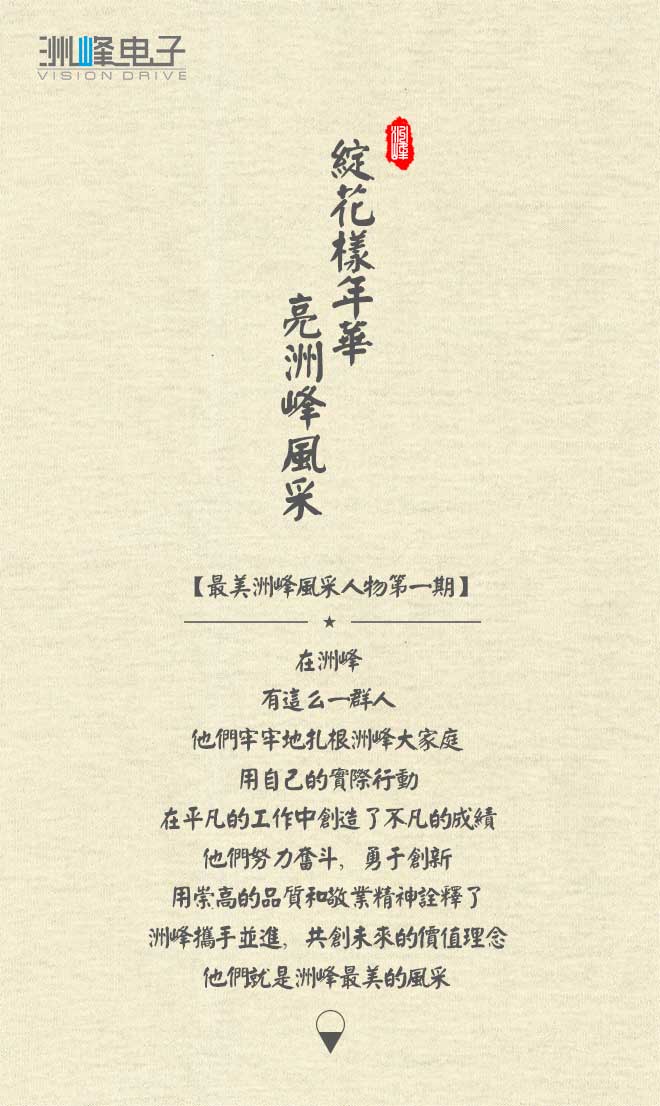 洲峰电子
VISION DRIVE
洲峰
綻花樣年華
亮洲峰風采
【最美洲峰風采人物第一期】
在洲峰
有這么一群人
他們牢牢地扎根洲峰大家庭
用自己的實際行動
在平凡的工作中創造了不凡的成績
他們努力奮斗，勇于創新
用崇高的品質和敬業精神詮釋了
洲峰攜手並進，共創未來的價值理念
他們就是洲峰最美的風采